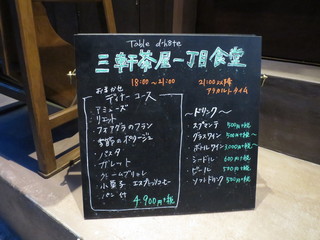 Table d'hôte
三軒茶屋一丁目食堂
18:00〜21:00
21:00以降
アラカルトタイム
おまかせ
ディナーコース
・アミューズ
・リエット
・フォアグラのフラン
・季節のポタージュ
・パスタ
・ガレット
・クレームブリュレ
・小菓子 エスプレッソ
・パン付
4,900円+税
〜ドリンク〜
・スプマンテ 500円+税
・グラスワイン 500円+税〜
・ボトルワイン 3,000円+税〜
・シードル 600円+税
・ビール 550円+税
・ソフトドリンク 500円+税